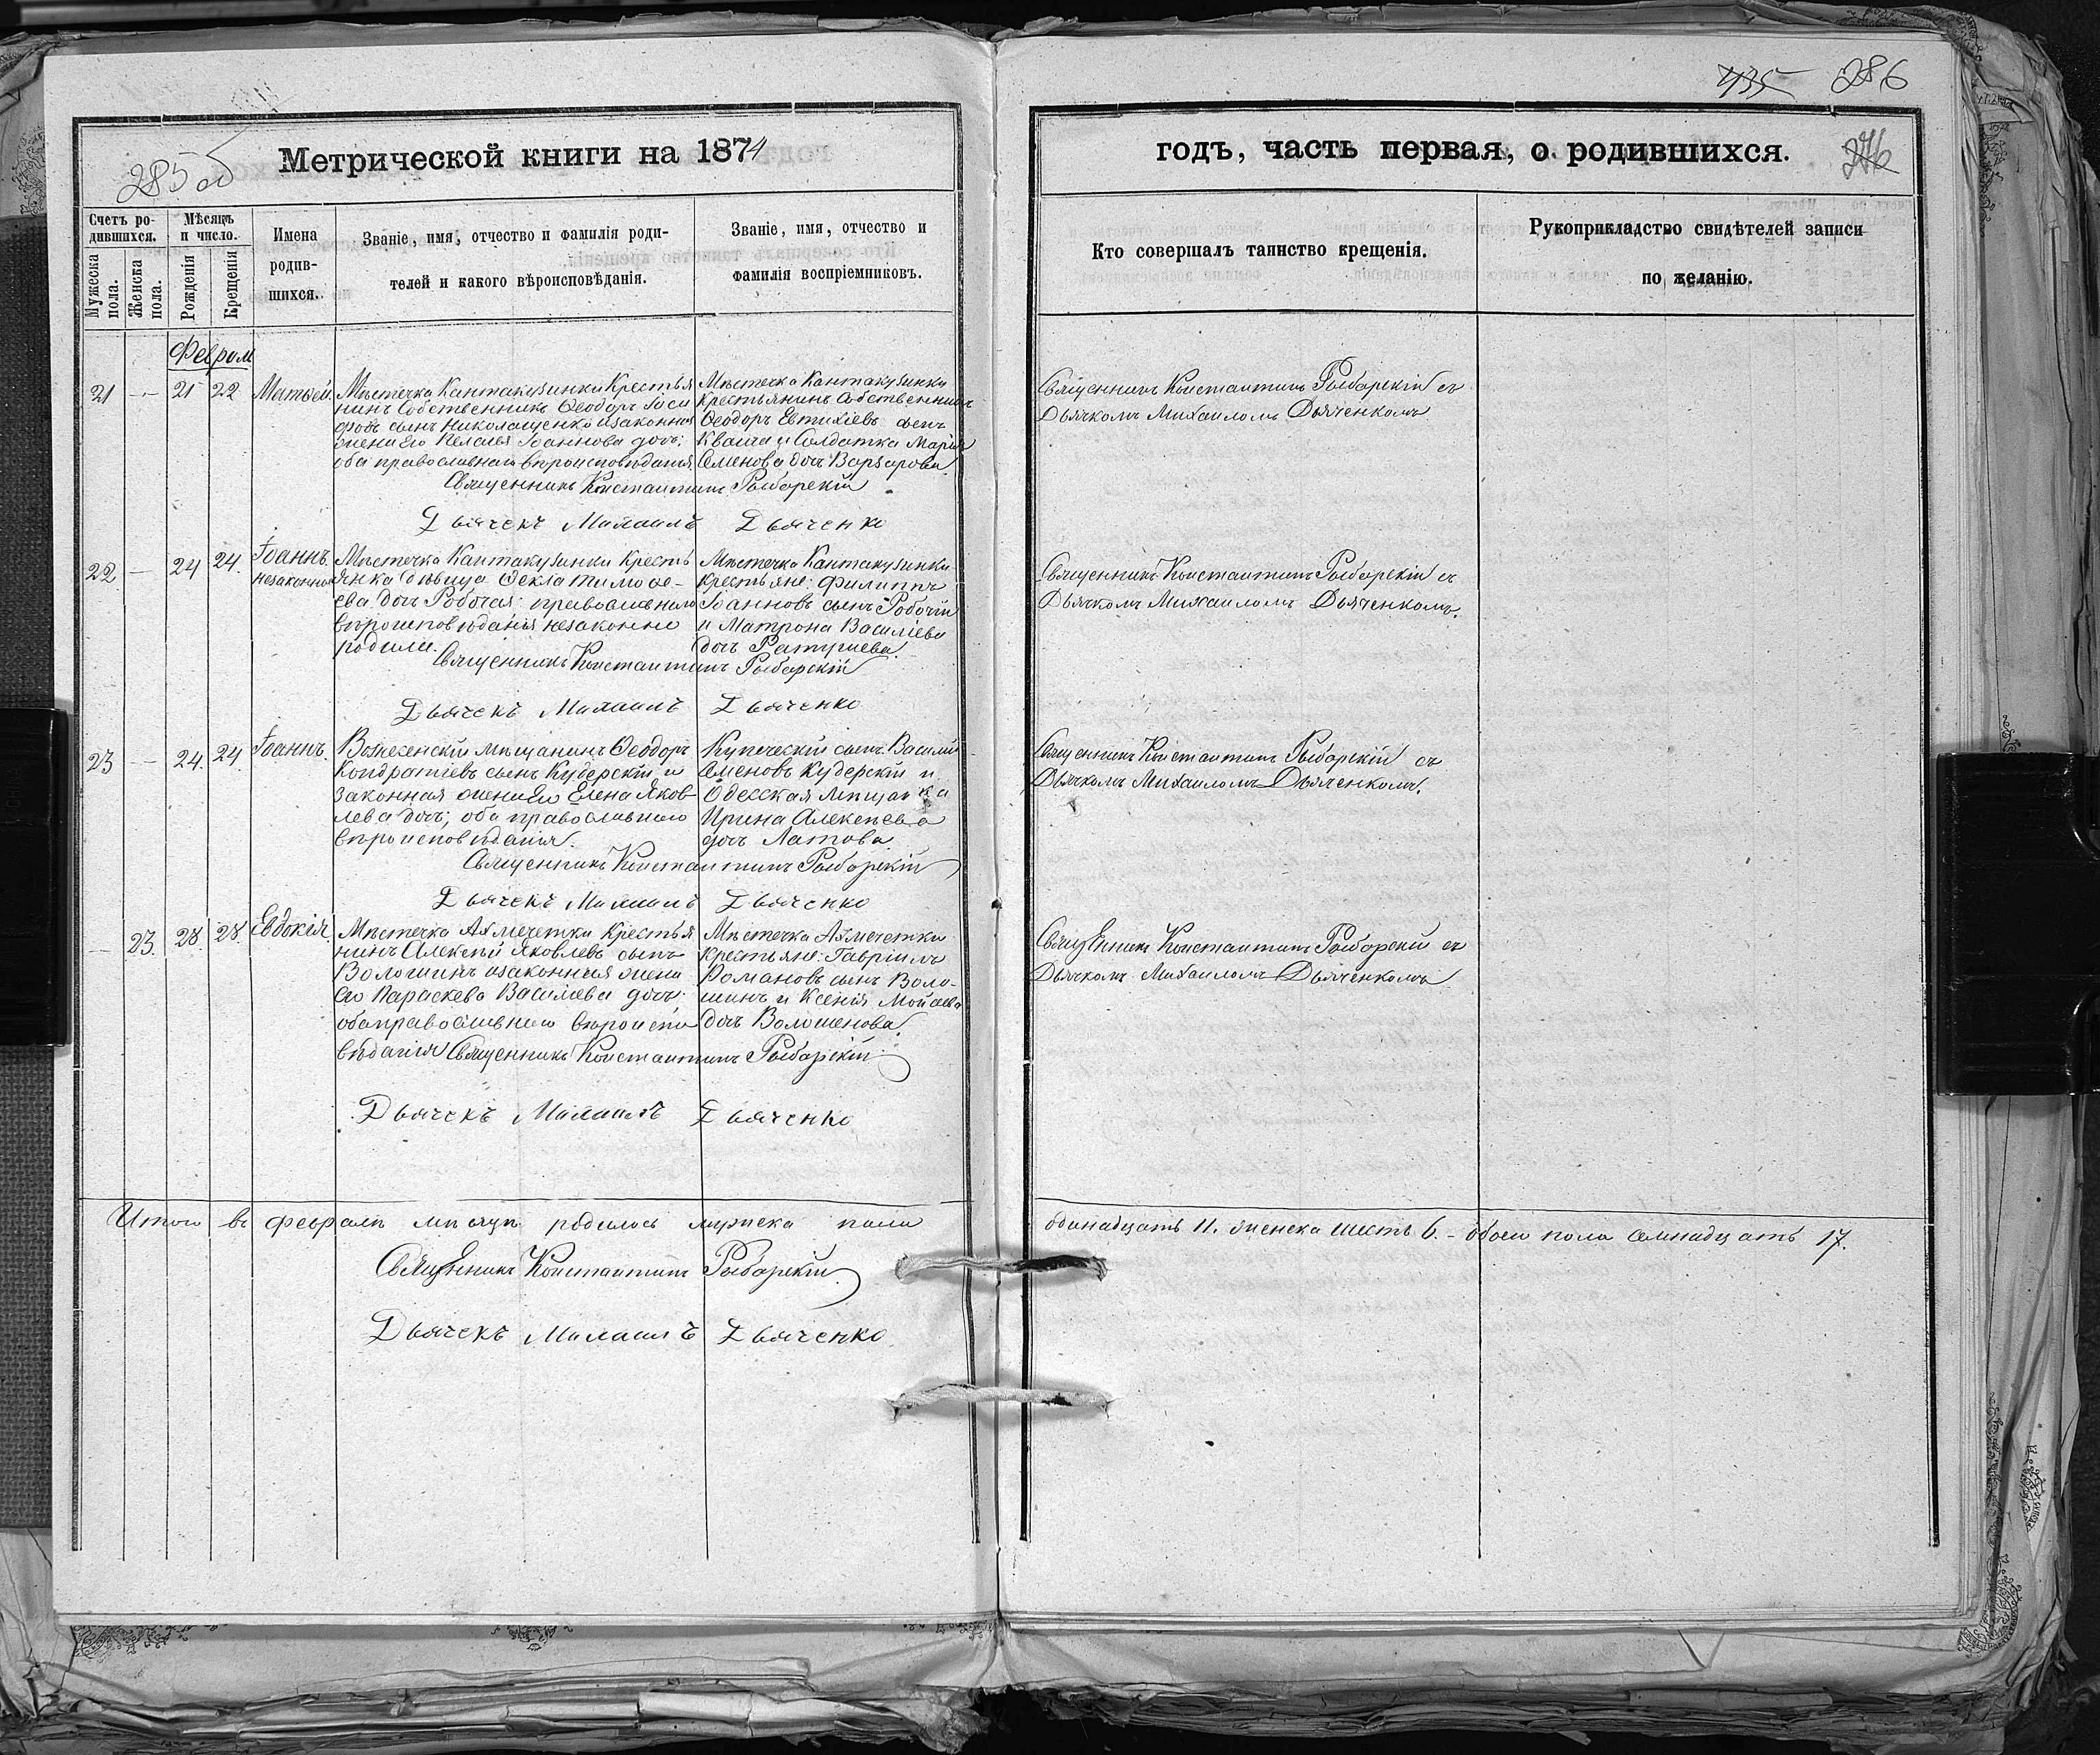 435 286
285 об
Метрической книги на 1874
годъ, часть первая, о родившихся.
276
Счетъ ро-
дившихся.
Мужеска
пола.
Женска
пола.
Мѣсяцъ
и число.
Рожденія
Крещенія
Имена
родив-
шихся.
Званіе, имя, отчество и фамилія роди-
телей и какого вѣроисповѣданія.
Званіе, имя, отчество и
фамилія воспріемниковъ.
Кто совершалъ таинство крещенія.
Рукоприкладство свидѣтелей записи
по желанію.
Феврал
21 — 21 22 Матѳей.
Мѣстечка Кантакузинки Крестья
нинъ Собственникъ Ѳеодоръ Іоси
фовъ сынъ Николащенко изаконная
жена Его Пелагея Іоаннова дочь;
оба православнаго вѣроисповѣданія
Мѣстечка Кантакузинки
крестьянинъ Собственникъ
Ѳеодоръ Евтихіевъ сынъ
Кваша и Солдатка Марія
Семенова дочь Варзарова
Священникъ Константинъ Рыбарскій
Дьячекъ Михаилъ Дьяченко
Священникъ Константинъ Рыбарскій съ
Дьячкомъ Михаиломъ Дьяченкомъ
22 — 24 24. Іоаннъ.
незаконно
Мѣстечка Кантакузинки Кресть
янка дѣвица Ѳекла Тимоѳе-
ева дочь Робочая; православнаго
вѣроисповѣданія незаконно
родила.
Мѣстечка Кантакузинки
крестьяне: Филиппъ
Іоанновъ сынъ Робочій
и Матрона Василіева
дочь
Священникъ Константинъ Рыбарскій
Дьячекъ Михаилъ Дьяченко
Священникъ Константинъ Рыбарскій съ
Дьячкомъ Михаиломъ Дьяченкомъ.
23 — 24. 24. Іоаннъ.
Вознесенскій мѣщанинъ Ѳеодоръ
Кондратіевъ сынъ Кудерскій и
законная жена Его Елена Яков
лева дочь; оба православнаго
вѣроисповѣданія.
Купеческій сынъ Василій
Семеновъ Кудерскій и
Одесская мѣщанка
Ирина Алексѣева
дочь Латова
Священникъ Константинъ Рыбарскій
Дьячекъ Михаилъ Дьяченко
Священникъ Константинъ Рыбарскій съ
Дьячкомъ Михаиломъ Дьяченкомъ.
— 23. 28. 28. Евдокія.
Мѣстечка Ахмечетки Крестья
нинъ Алексѣй Яковлевъ сынъ
Волошинъ изаконная жена
Его Параскева Василіева дочь;
оба православнаго вѣроиспо
вѣданія
Мѣстечка Ахмечетки
Крестьяне: Гавріилъ
Романовъ сынъ Воло-
шинъ и Ксенія Мойсеева
дочь Волошенова
Священникъ Константинъ Рыбарскій
Дьячекъ Михаилъ Дьяченко
Священникъ Константинъ Рыбарскій съ
Дьячкомъ Михаиломъ Дьяченкомъ
Итого въ февралѣ мѣсяцѣ родилось мужска пола
одинадцать 11. женска шесть 6. - обоего пола семнадцать 17.
Священникъ Константинъ Рыбарскій
Дьячекъ Михаилъ Дьяченко